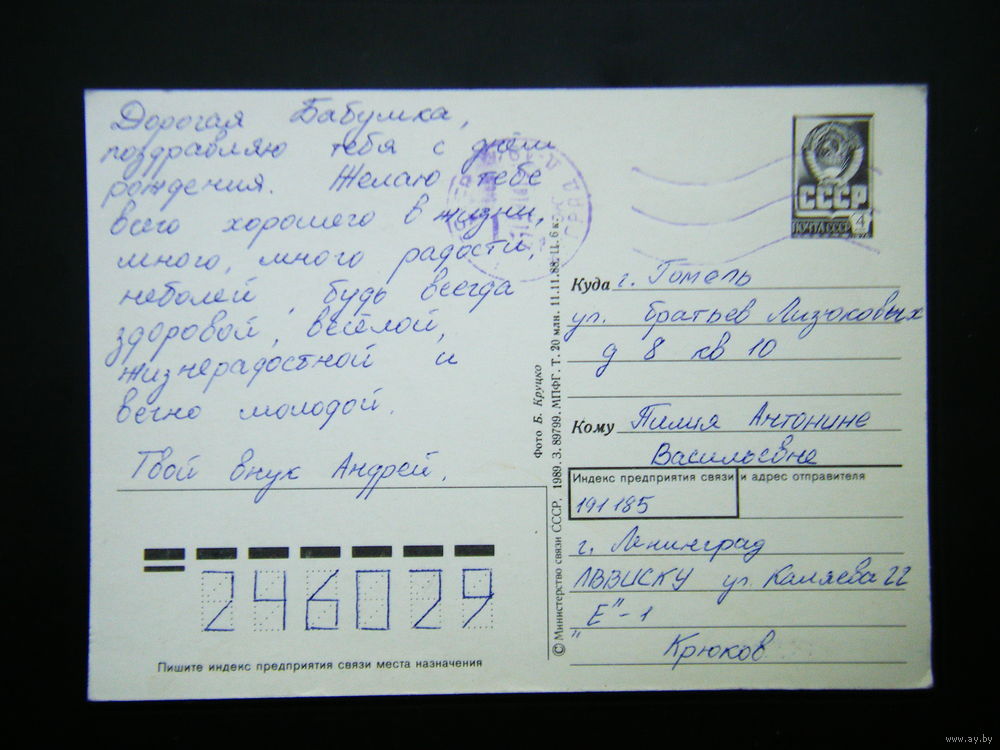 Дорогая Бабушка,
поздравляю тебя с днём
рождения. Желаю тебе
всего хорошего в жизни,
много, много радости,
неболей, будь всегда
здоровой, весёлой,
жизнерадостной и
вечно молодой.
Твой внук Андрей.
СССР
ПОЧТА СССР
4
Куда г. Гомель
ул. Братьев Лизюковых
д 8 кв 10
Кому Пилия Антонине
Васильевне
Индекс предприятия связи и адрес отправителя
191185
г. Ленинград
ЛВВИСКУ ул Каляева 22
"Е"-1
Крюков
Фото Б. Круцко
© Министерство связи СССР. 1989. З. 89799. МПФГ. Т. 20 млн. 11.11.88. Ц. 6 к.
246029
Пишите индекс предприятия связи места назначения
www.ay.by